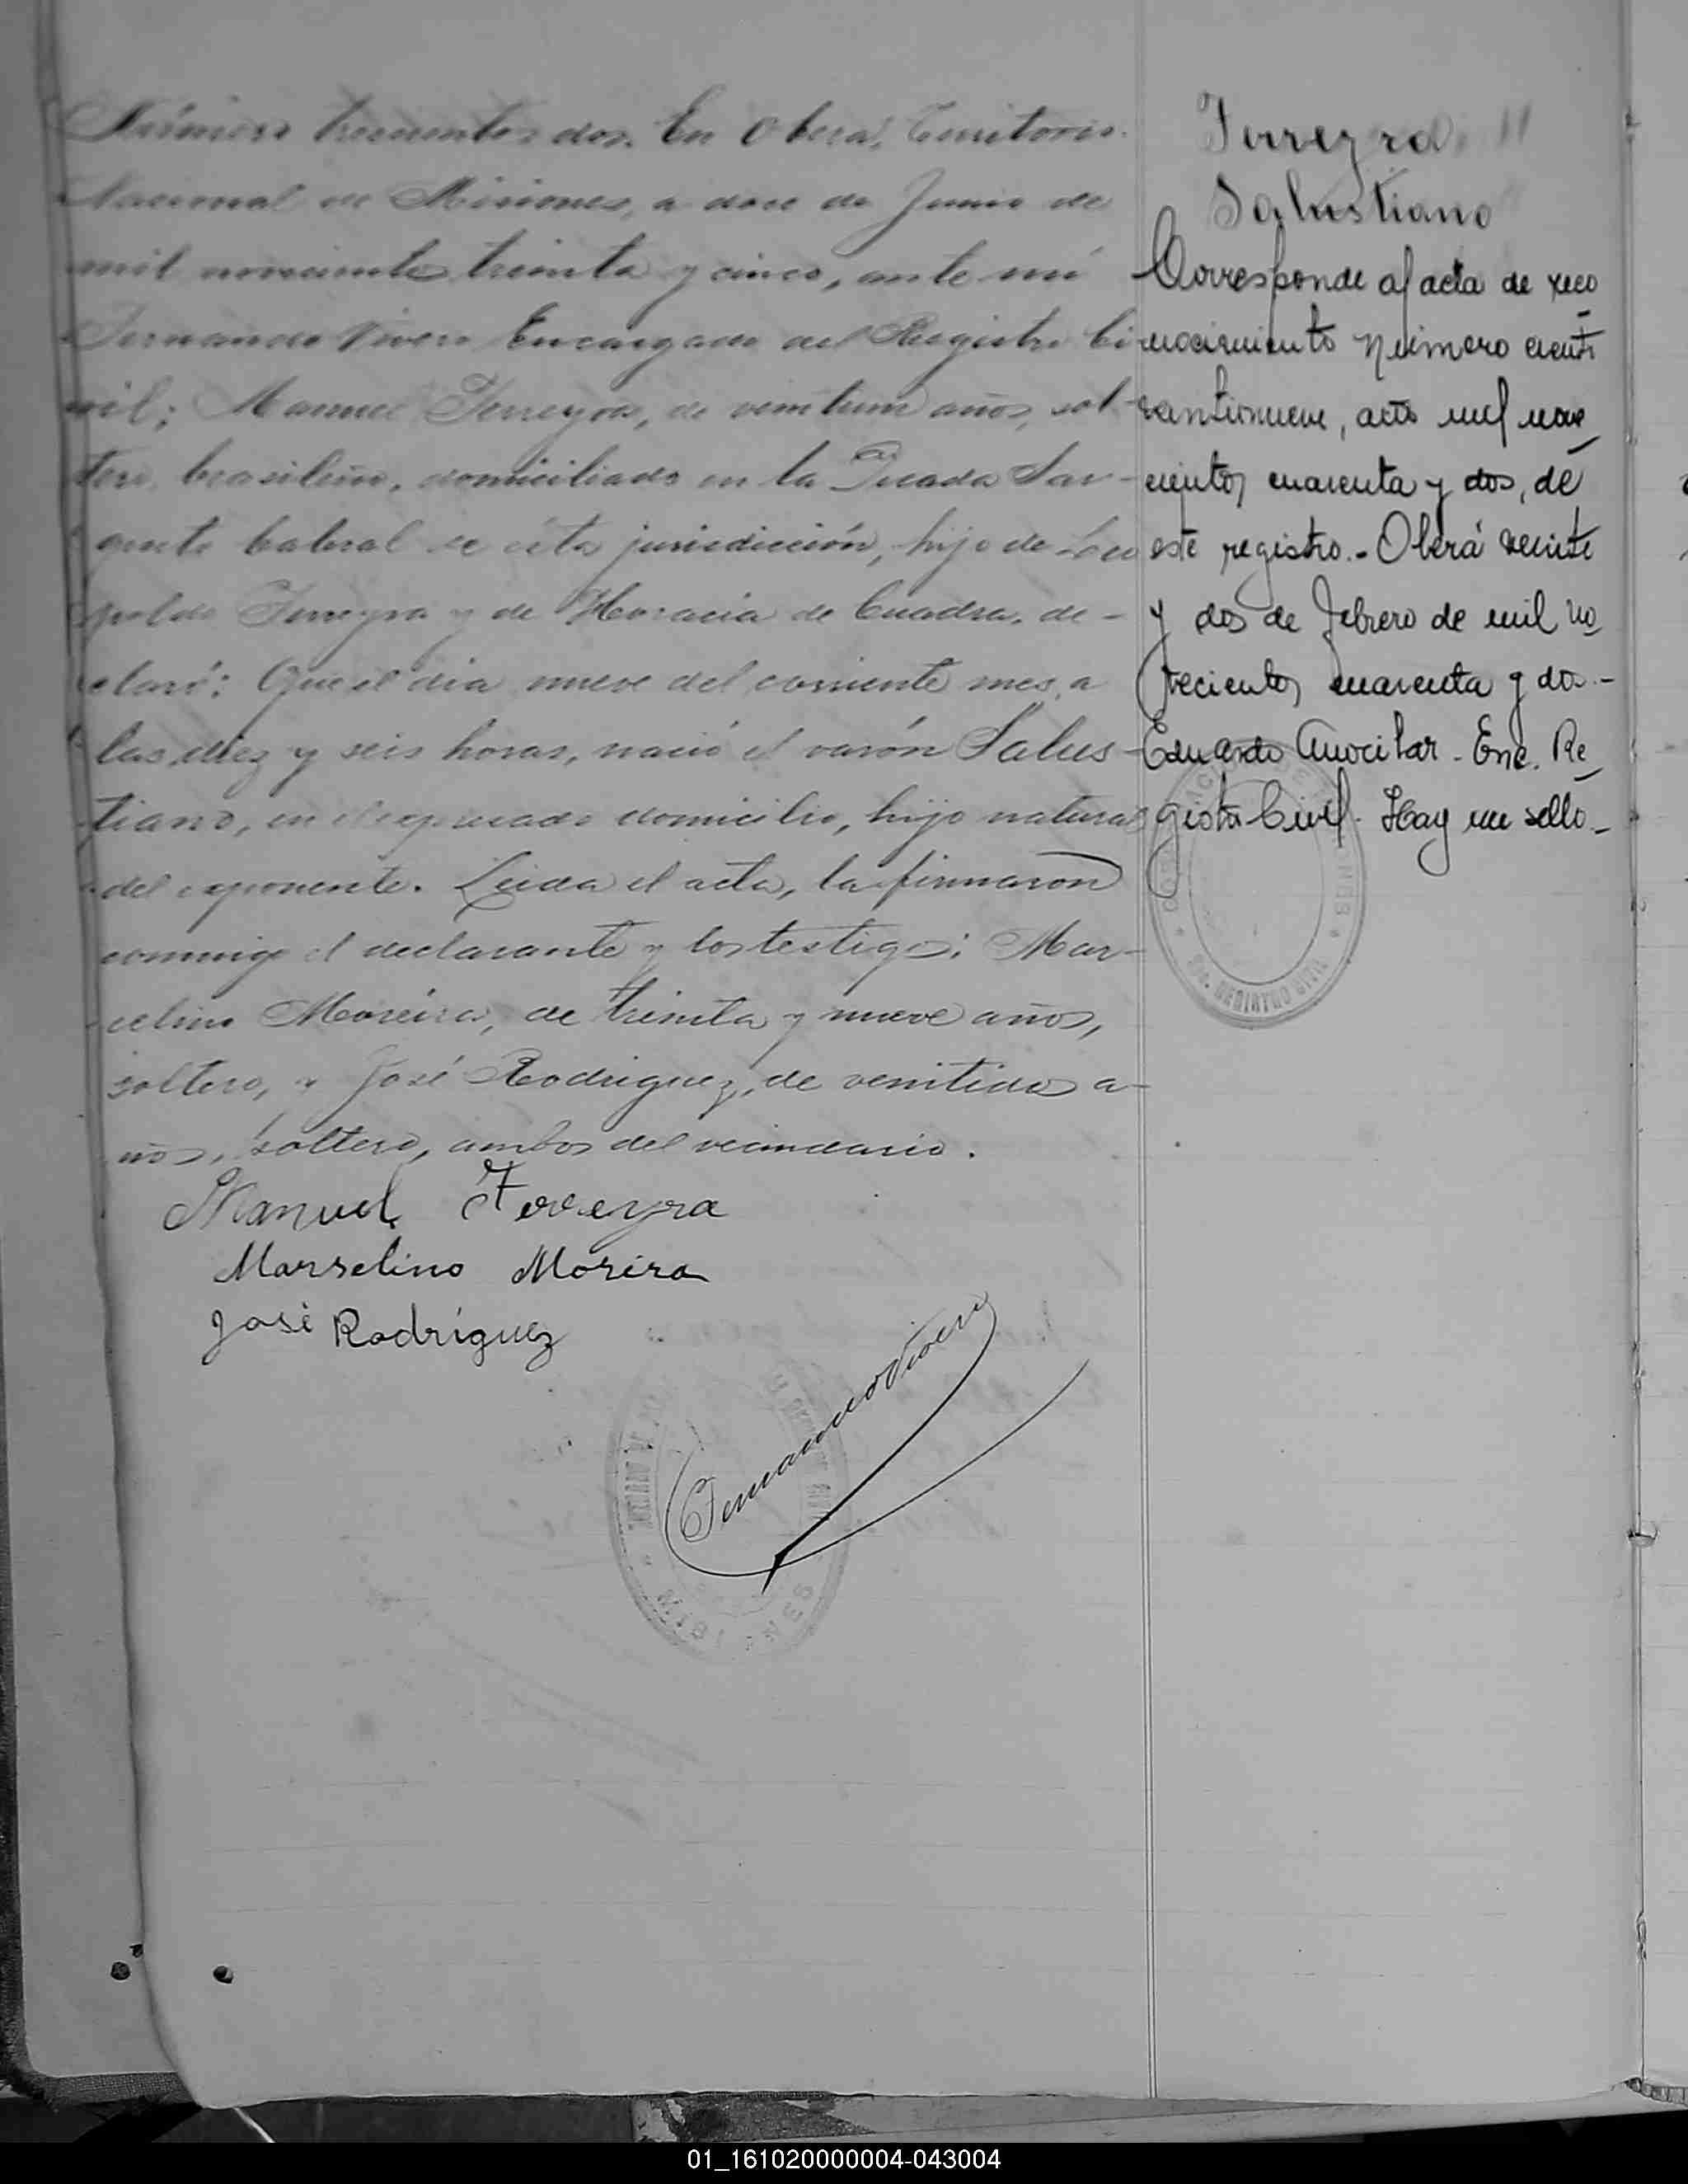 Número trescientos dos. En Oberá, Territorio
Nacional de Misiones, a doce de Junio de
mil novecientos treinta y cinco, ante mí
Fernando Vivero Encargado del Registro Ci
vil; Manuel Ferreyra, de veintiun años, sol-
tero, brasileño, domiciliado en la Picada Sar-
gento Cabral de ésta jurisdicción, hijo de Leo
poldo Ferreyra y de Horacia de Cuadra, de-
claró: Que el día nueve del corriente mes, a
las diez y seis horas, nació el varón Salus-
tiano, en el expresado domicilio, hijo natural
del exponente. Leida el acta, la firmaron
conmigo el declarante y los testigos: Mar-
celino Moreira, de treinta y nueve años,
soltero, y José Rodriguez, de veintidos a-
ños, soltero, ambos del vecindario.
Manuel Ferreyra
Marselino Morira
José Rodríguez
Fernando Vivero
MISIONES
Ferreyra
Salustiano
Corresponde al acta de reco
nocimiento número cient
veintinueve, año mil nove
cientos cuarenta y dos, de
este registro.- Oberá veinte
y dos de febrero de mil no
vecientos cuarenta y dos.-
Eduardo - Enc. Re
gistro Civil. Hay un sello.-
REGISTRO CIVIL
01_161020000004-043004